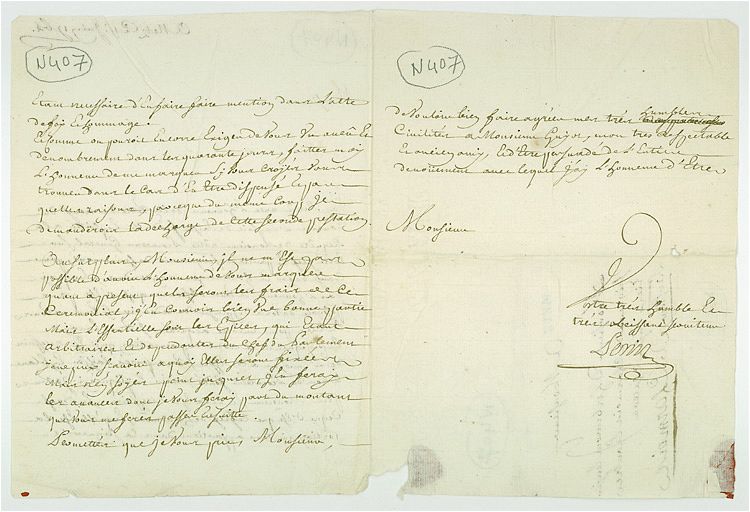 N407
Etant necessaire d'En faire faire mention dans l'acte
de foy Et hommage.
Et comme on pouroit Encorre Exiger de Vous Un aveu Et
denombrement dans les quarante jours, faittes moy
L'honneur de me marquer Si Vous Croyés Vous
trouver dans le Cas d'En Etre dispensé Et par
quelles raisons, parceque du meme Coup Je
demanderois la decharge de Cette Seconde prestation.
Au Surplus, Monsieur, Il ne m'Est pas
possible d'avoir L'honneur de Vous marquer
quant a present quels Seront les frais de Ce
Ceremonial, J'En Connois bien Une bonne partie
Mais L'Essentielle Sont les Epices, qui Etant
arbitraires Et dependantes du Chef du Parlement
Je ne puis Scavoir a quoy Elles Seront fixées
Mais n'En Soyés point inquiet, J'En feray
les avances dont je Vous feray part du montant
que Vous me ferés passer Ensuitte.
Permettés que je Vous prie, Monsieur,
N407
de Vouloir bien faire agréer mes trés humbles
Civilités a Monsieur Guyot, mon tres respectable
Et ancien amy, Et d'Etre persuadé de L'Entier
devoüement avec lequel J'ay L'honneur d'Etre
Monsieur
Votre trés humble Et
tres obeissant Serviteur
Perin